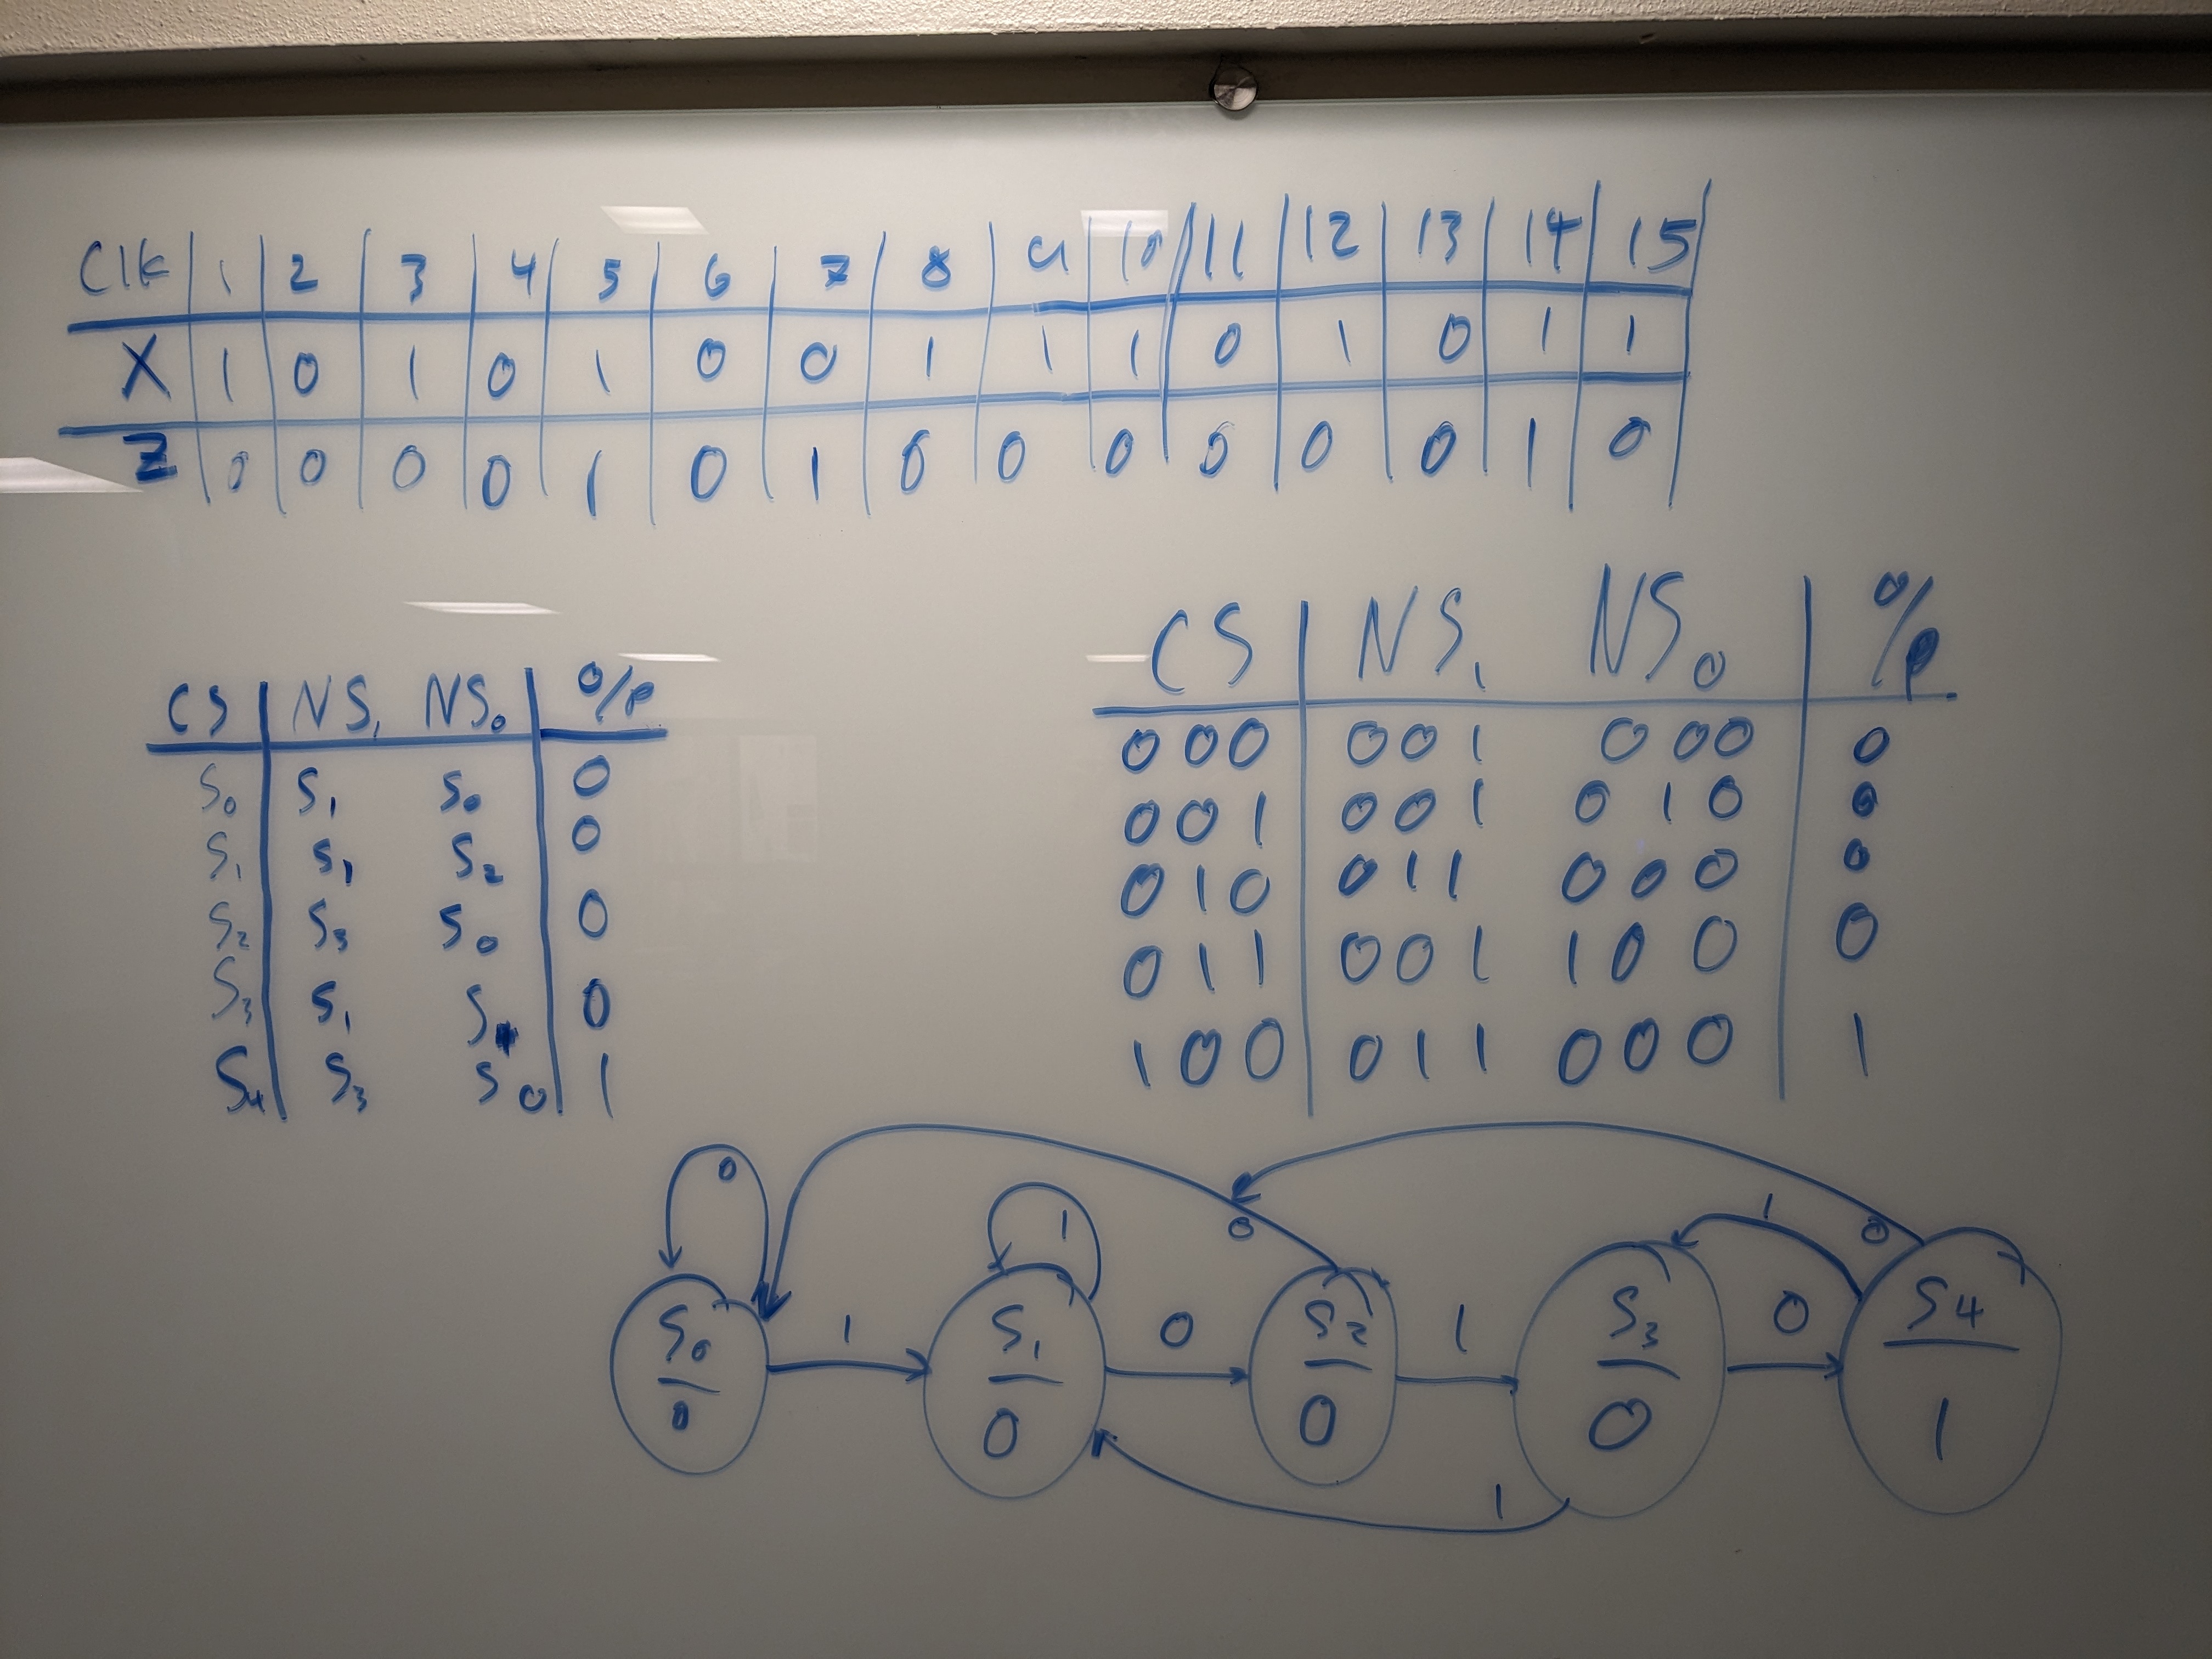 Clk 1 2 3 4 5 6 7 8 9 10 11 12 13 14 15
X 1 0 1 0 1 0 0 1 1 1 0 1 0 1 1
Z 0 0 0 0 1 0 1 0 0 0 0 0 0 1 0
CS NS1 NS0 O/P
S0 S1 S0 0
S1 S1 S2 0
S2 S3 S0 0
S3 S1 S4 0
S4 S3 S0 1
CS NS1 NS0 O/P
000 001 000 0
001 001 010 0
010 011 000 0
011 001 100 0
100 011 000 1
0 1 0 1 0
S0 1 S1 0 S2 1 S3 0 S4
0 0 0 0 1
1